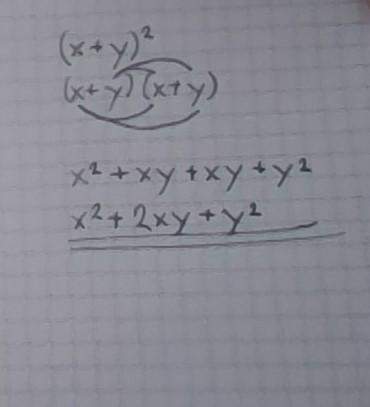 (x+y)²
(x+y)(x+y)
x²+xy+xy+y²
x²+2xy+y²